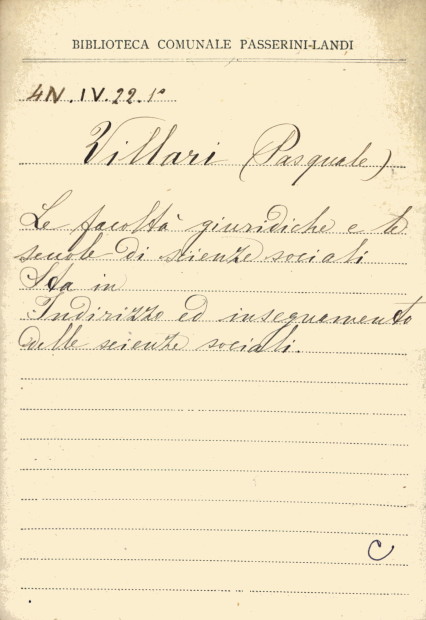 BIBLIOTECA COMUNALE PASSERINI-LANDI
4N.IV.22.1º
Villari (Pasquale)
Le facoltà giuridiche e le
scuole di scienze sociali
Sta in
Indirizzo ed insegnamento
delle scienze sociali.
C